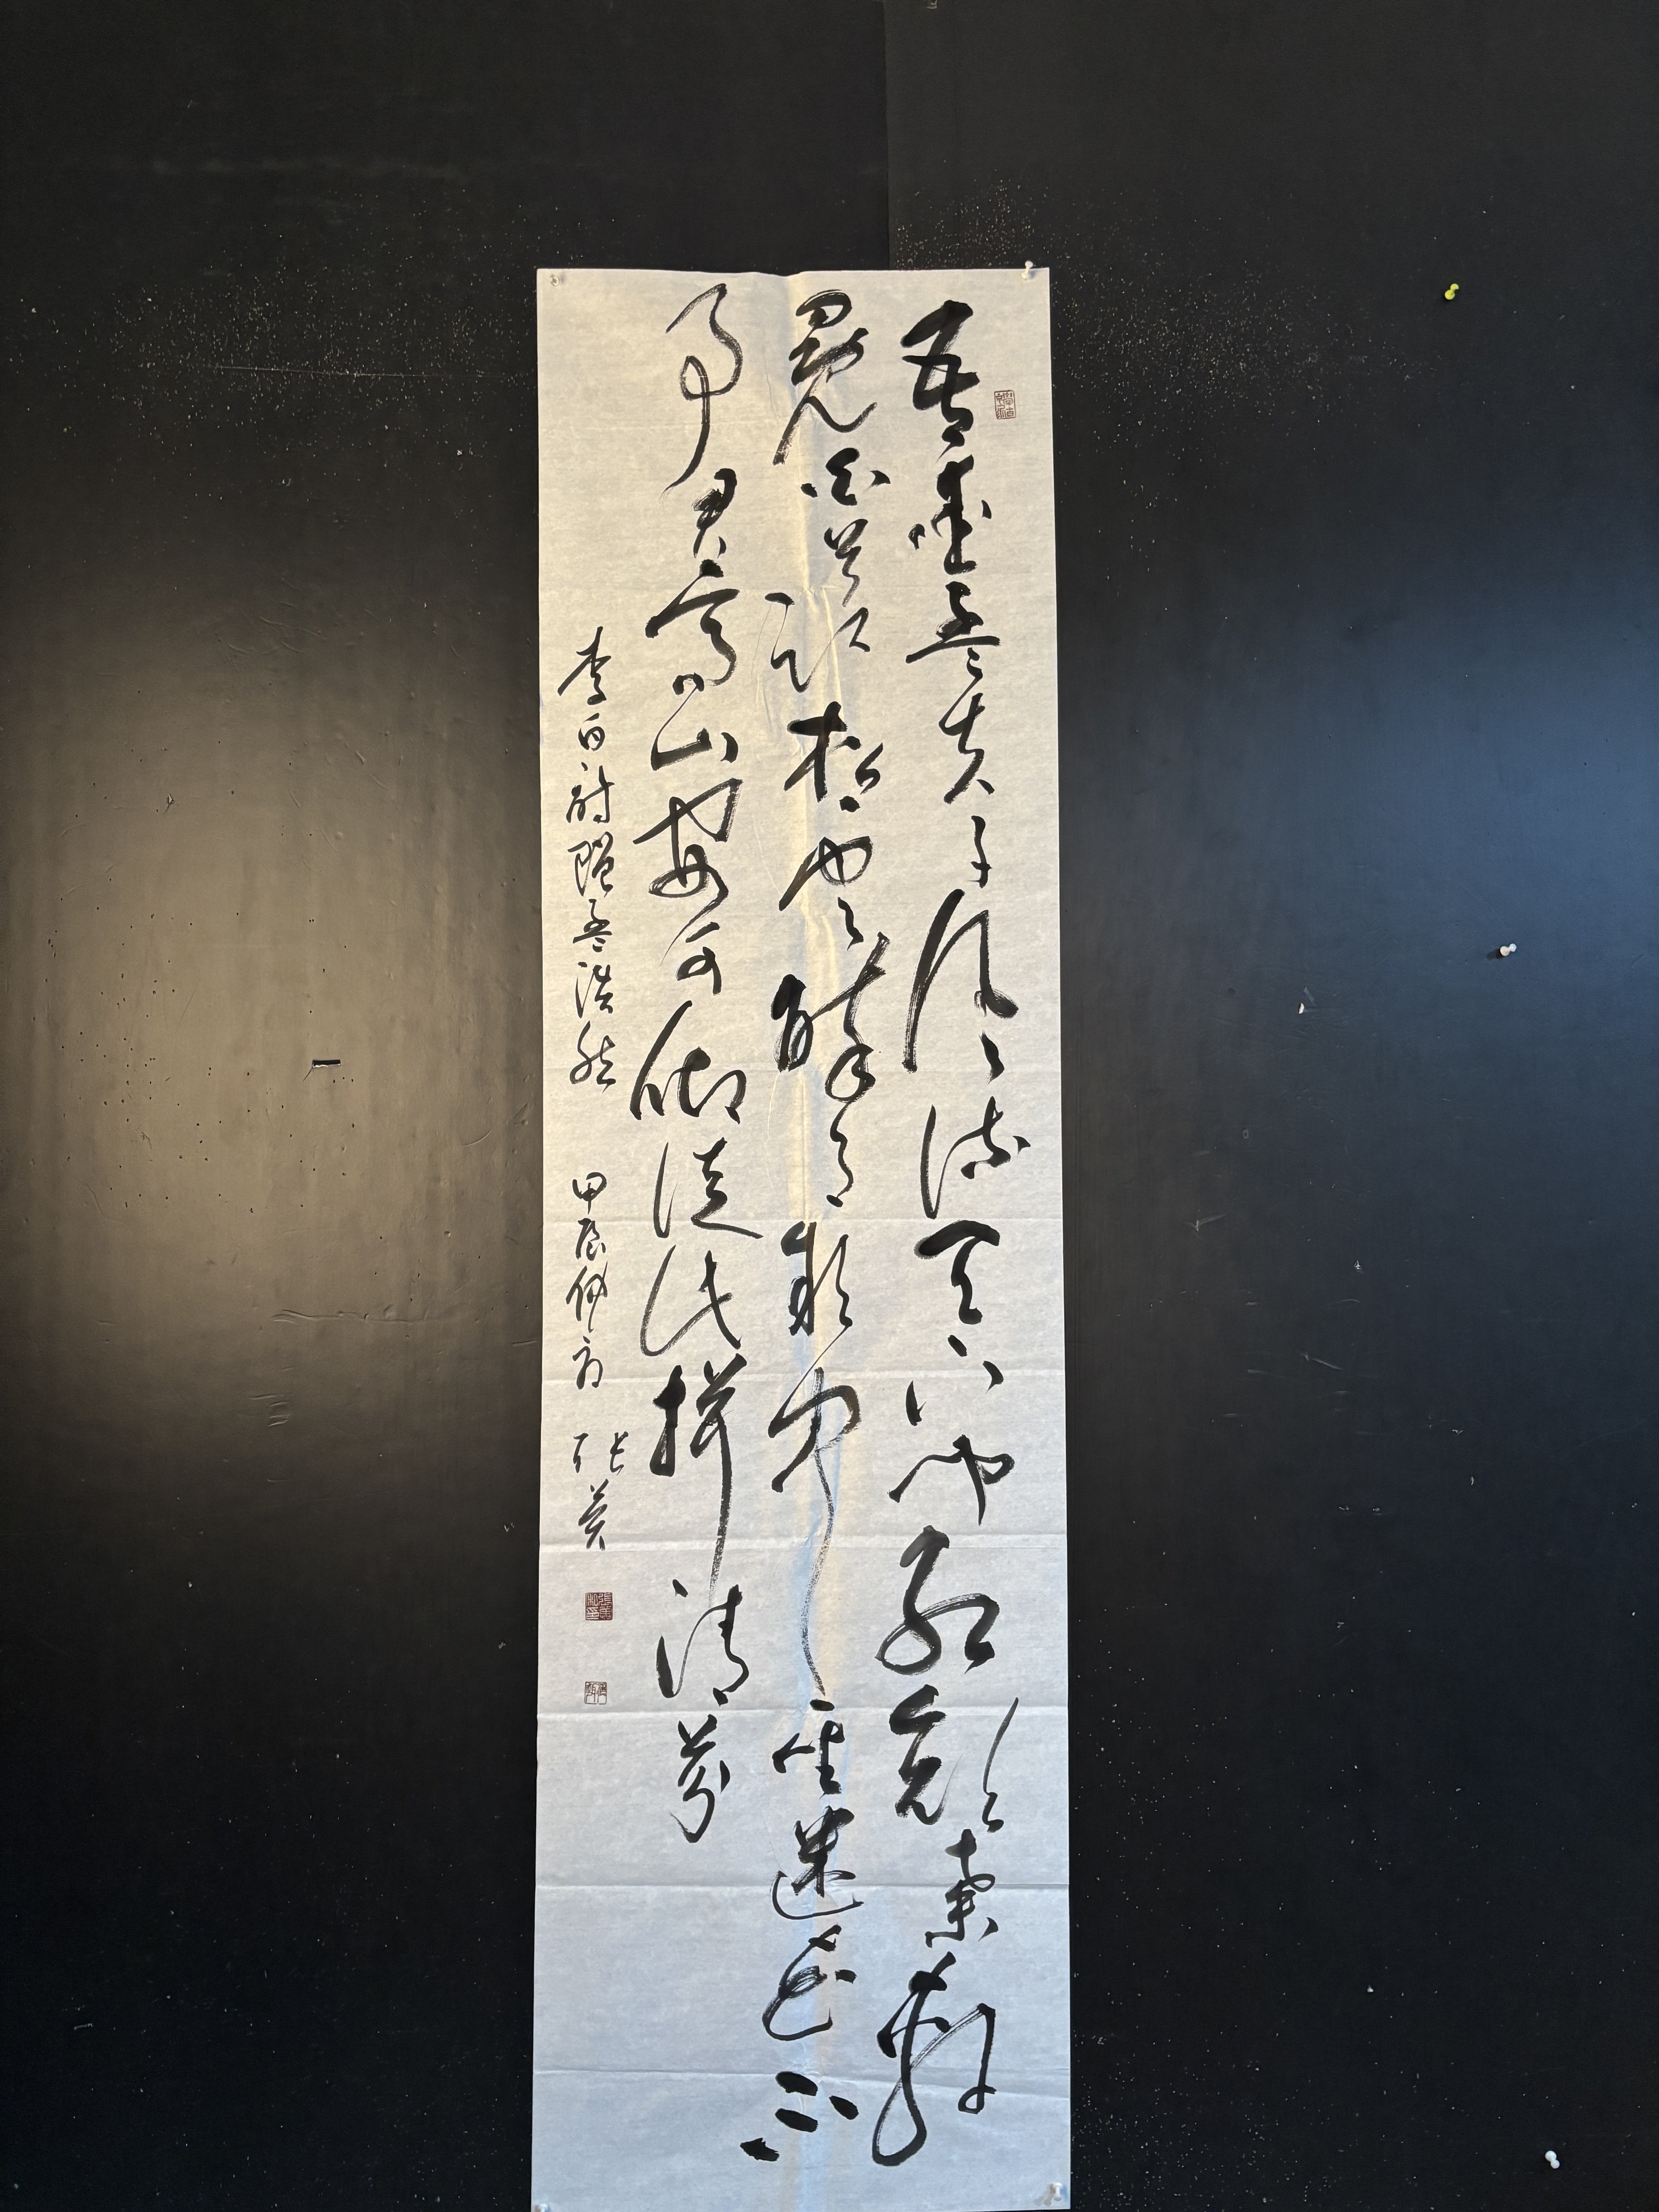 吾愛孟夫子風流天下聞紅顏棄軒
冕白首臥松雲醉月頻中聖迷花不
事君高山安可仰徒此揖清芬
李白詩贈孟浩然 甲辰 張英